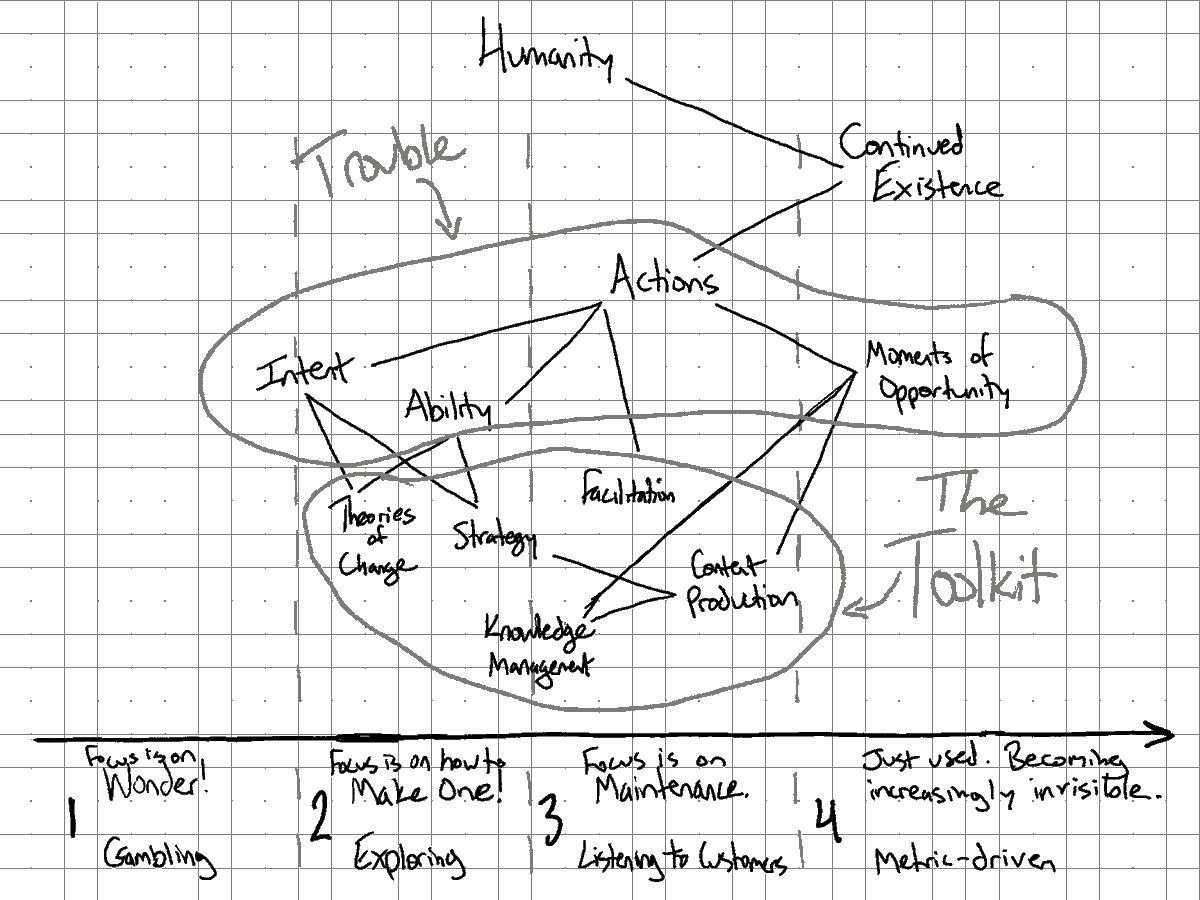 Humanity
Trouble
Continued
Existence
Actions
Intent
Ability
Moments of
Opportunity
Theories
of
Change
Strategy
Facilitation
Content
Production
Knowledge
Management
The
Toolkit
1
Focus is on
Wonder!
Gambling
2
Focus is on how to
Make One!
Exploring
3
Focus is on
Maintenance.
Listening to Customers
4
Just used. Becoming
increasingly invisible.
Metric-driven